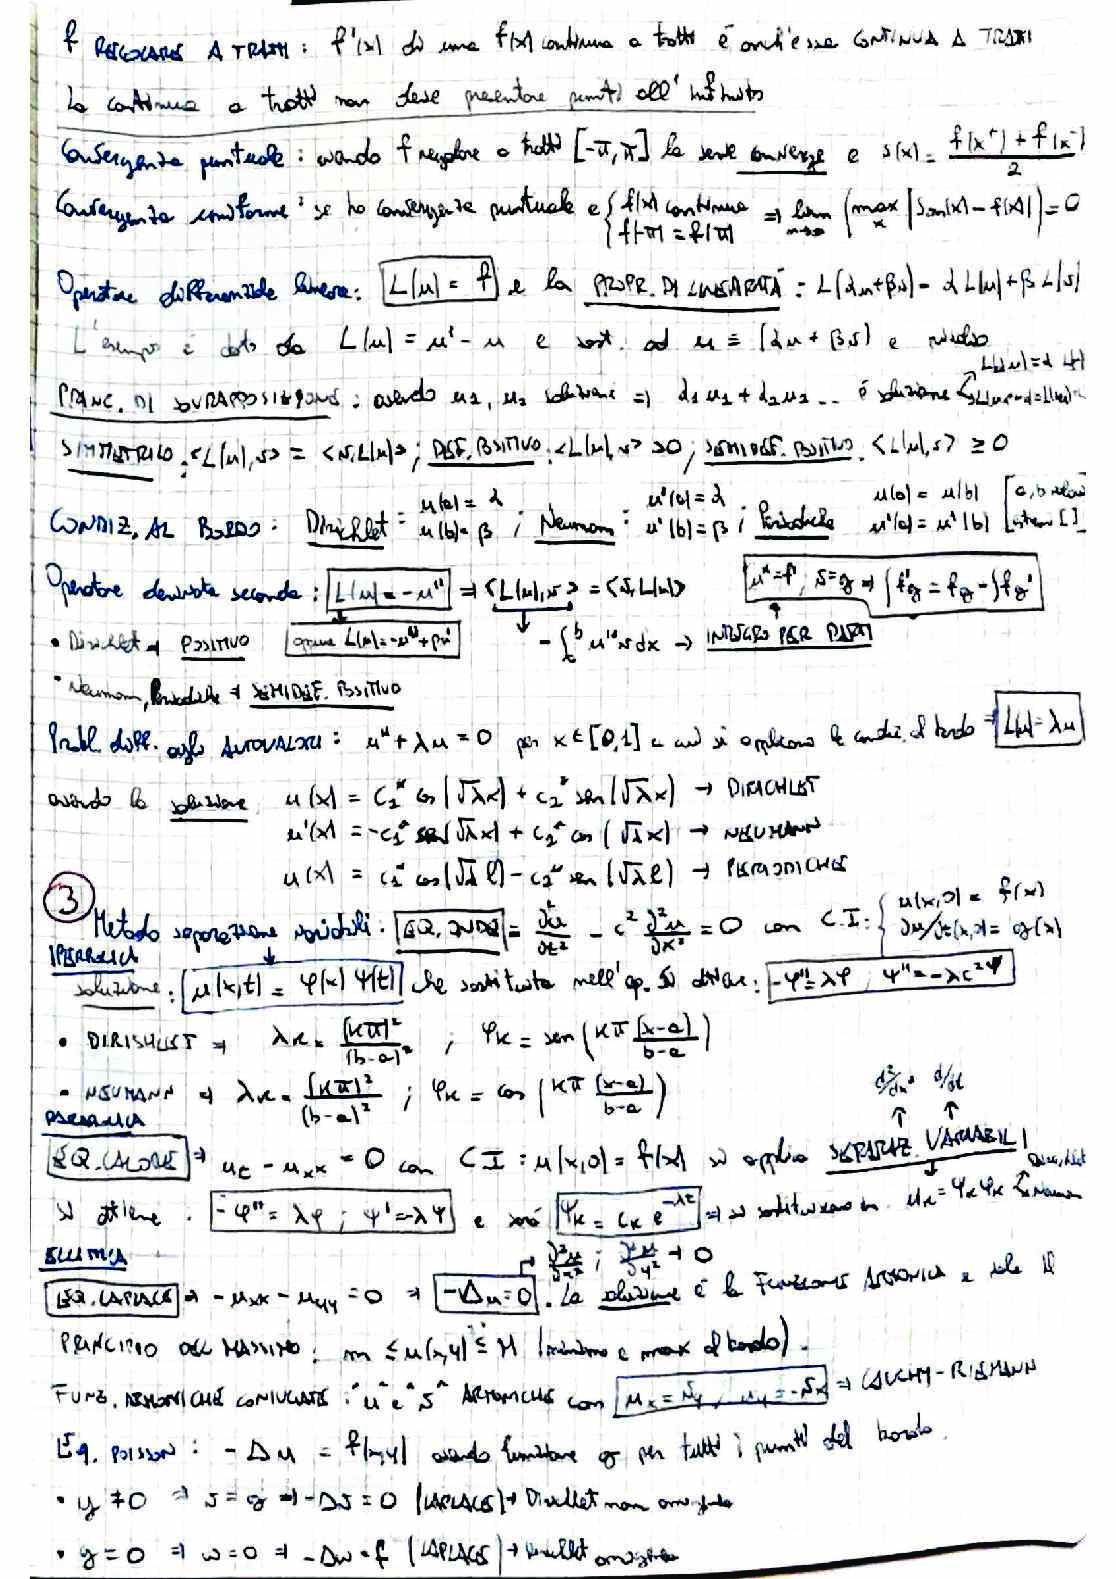 f REGOLARE A TRATTI: f'(x) di una f(x) continua a tratti è anch'essa CONTINUA A TRATTI
La continua a tratti non deve presentare punti all'infinito
Convergenza puntuale: avendo f regolare a tratti [-π, π] la serie converge e s(x) = (f(x⁺) + f(x⁻))/2
Convergenza uniforme: se ho convergenza puntuale e { f(x) continua f(-π) = f(π) ⇒ lim n→∞ (max x |Sn(x) - f(x)|) = 0
Operatore differenziale lineare: L(u) = f e la PROPR. DI LINEARITÀ: L(αu+βv) = αL(u)+βL(v)
L'esempio è dato da L(u) = u' - u e sost. ad u ≡ (αu + βv) e
PRINC. DI SOVRAPPOSIZIONE: avendo u1, u2 soluzioni ⇒ α1u1 + α2u2 ... è soluzione
SIMMETRICO: <L(u),v> = <v,L(u)>; DEF. POSITIVO: <L(u),v> >0; SEMIDEF. POSITIVO: <L(u),v> ≥ 0
CONDIZ. AL BORDO: Dirichlet: u(a) = α u(b) = β; Neumann: u'(a) = α u'(b) = β; Periodiche u(a) = u(b) u'(a) = u'(b)
Operatore derivata seconda: L(u) = -u'' ⇒ <L(u),v> = <v,L(u)> u''=f', v=g ⇒ ∫f'g = fg - ∫fg'
• Dirichlet ⇒ POSITIVO oppure -∫ₐᵇ u''v dx → INTEGRO PER PARTI
• Neumann, Periodiche ⇒ SEMIDEF. POSITIVO
Probl. diff. agli AUTOVALORI: u'' + λu = 0 per x∈[0,1] a cui si applicano le condiz. al bordo ⇒ L(u) = λu
avendo la soluzione u(x) = c1* cos(√λx) + c2* sen(√λx) → DIRICHLET
u'(x) = -c1* sen(√λx) + c2* cos(√λx) → NEUMANN
u(x) = c1* cos(√λ l) - c2* sen(√λ l) → PERIODICHE
3 Metodo separazione variabili: EQ. ONDE = ∂²u/∂t² - c² ∂²u/∂x² = 0 con C.I: { u(x,0) = f(x) ∂u/∂t(x,0) = g(x)
IPERBOLICA
soluzione: u(x,t) = φ(x) ψ(t) che sostituita nell'op. si ottiene: -φ''=λφ, ψ''=-λc²ψ
• DIRISHLET ⇒ λκ = (κπ)²/(b-a)²; φκ = sen(κπ (x-a)/(b-a))
• NEUMANN ⇒ λκ = (κπ)²/(b-a)²; φκ = cos(κπ (x-a)/(b-a))
d²/dx² d/dt
PARABOLICA
EQ. CALORE ⇒ ut - uxx = 0 con CI: u(x,0) = f(x) si applica SEPARAZ. VARIABILI
si ottiene: -φ'' = λφ; ψ' = -λψ e sarà ψκ = cκ e^-λt ⇒ si sostituiscono in uκ = ψκ φκ
ELLITTICA
EQ. LAPLACE ⇒ -uxx - uyy = 0 ⇒ -Δu = 0 ∂²u/∂x²; ∂²u/∂y² → 0. La soluzione è la FUNZIONE ARMONICA e vale il
PRINCIPIO DEL MASSIMO: m ≤ u(x,y) ≤ M (minimo e max al bordo).
FUNZ. ARMONICHE CONIUGATE: "u" e "v" ARMONICHE con ux = vy, uy = -vx ⇒ CAUCHY-RIEMANN
Eq. POISSON: -Δu = f(x,y) avendo funzione g per tutti i punti del bordo.
• g ≠ 0 ⇒ v = g ⇒ -Δv = 0 (LAPLACE) → Dirichlet non omogeneo
• g = 0 ⇒ w = 0 ⇒ -Δw = f (LAPLACE) → Dirichlet omogeneo